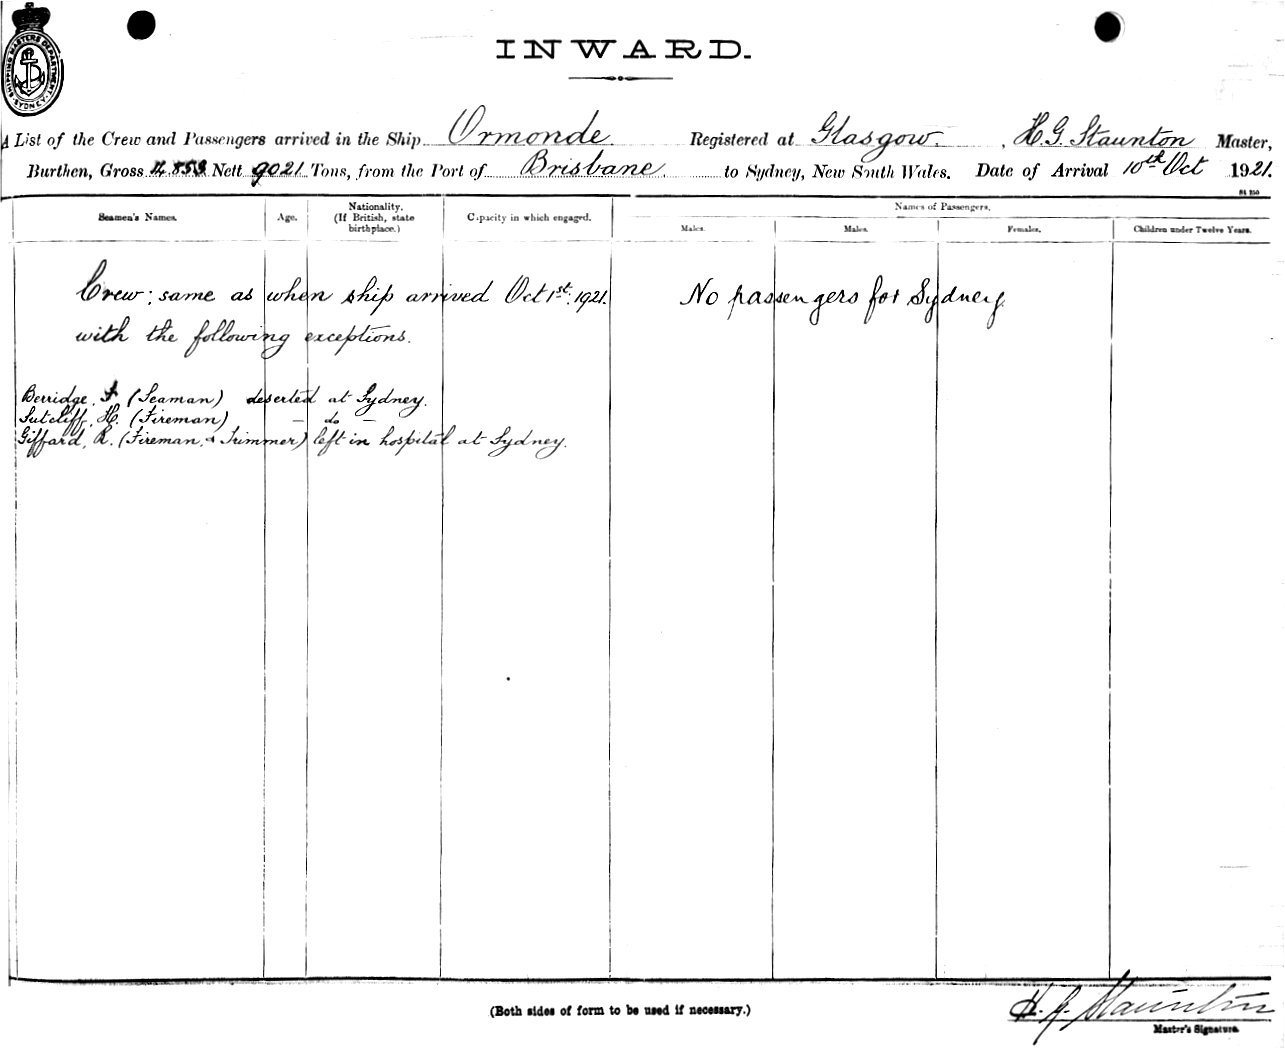 SHIPPING MASTERS DEPARTMENT
SYDNEY
INWARD.
A List of the Crew and Passengers arrived in the Ship Ormonde Registered at Glasgow. , H.G. Staunton Master,
Burthen, Gross Nett 9021 Tons, from the Port of Brisbane. to Sydney, New South Wales. Date of Arrival 10th Oct 1921.
Seamen's Names. Age. Nationality. (If British, state birthplace.) Capacity in which engaged. Names of Passengers.
Males. Males. Females. Children under Twelve Years.
Crew: same as when ship arrived Oct 1st: 1921. No passengers for Sydney
with the following exceptions.
Berridge, (Seaman) deserted at Sydney.
Sutcliff, H. (Fireman) – do –
Giffard, R. (Fireman & Trimmer) left in hospital at Sydney.
(Both sides of form to be used if necessary.)
H. G. Staunton
Master's Signature.